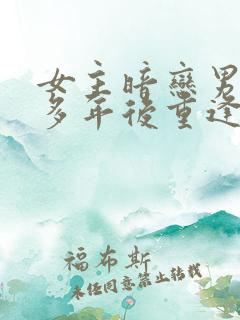 女主暗戀男
多年後重逢
福布斯
未经同意禁止转载